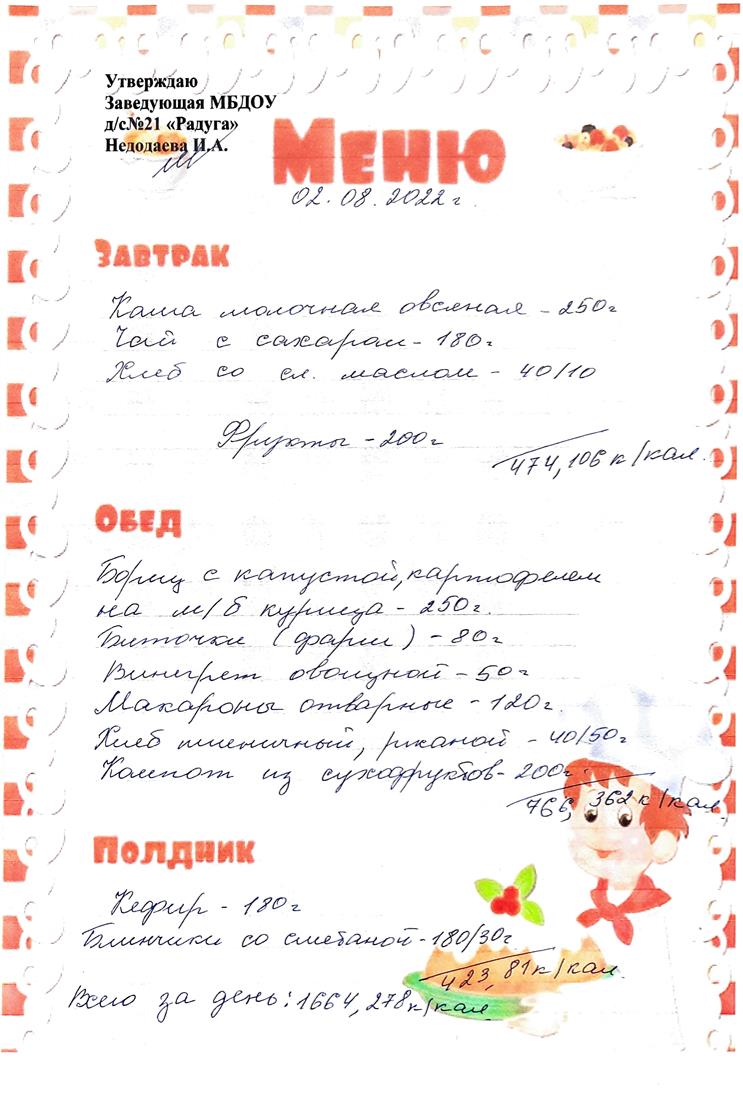 Утверждаю
Заведующая МБДОУ
д/с.№21 «Радуга»
Недодаева И.А.
Меню
02.08.2022г.
Завтрак
Каша молочная овсяная - 250г
Чай с сахаром - 180г
Хлеб со сл. маслом - 40/10
Фрукты - 200г
474,106 к/кал.
Обед
Борщ с капустой, картофелем
на м/б курица - 250г.
Биточки (фарш) - 80г
Винегрет овощной - 50г
Макароны отварные - 120г.
Хлеб пшеничный, ржаной - 40/50г
Компот из сухофруктов - 200г.
766,362 к/кал.
Полдник
Кефир - 180г
Блинчики со сметаной - 180/30г
423,81 к/кал.
Всего за день: 1664,278 к/кал